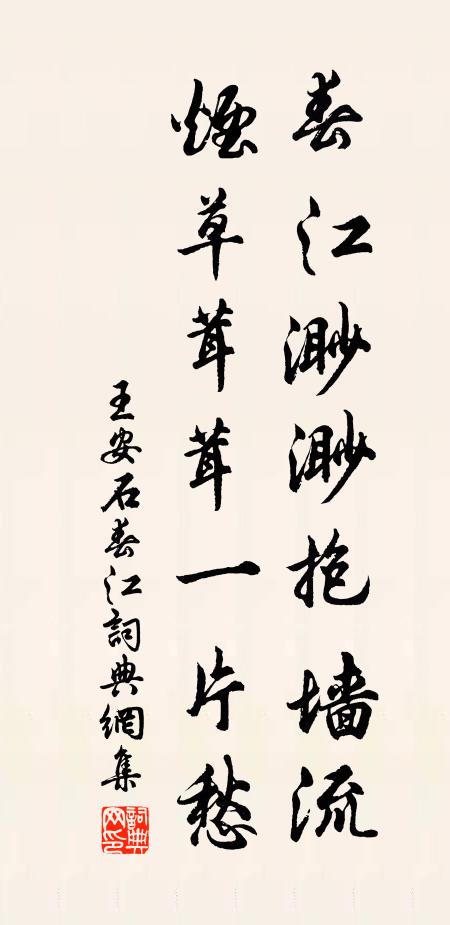 春江渺渺抱墙流
煙草茸茸一片愁
王安石春江詞典網集
詞典網印